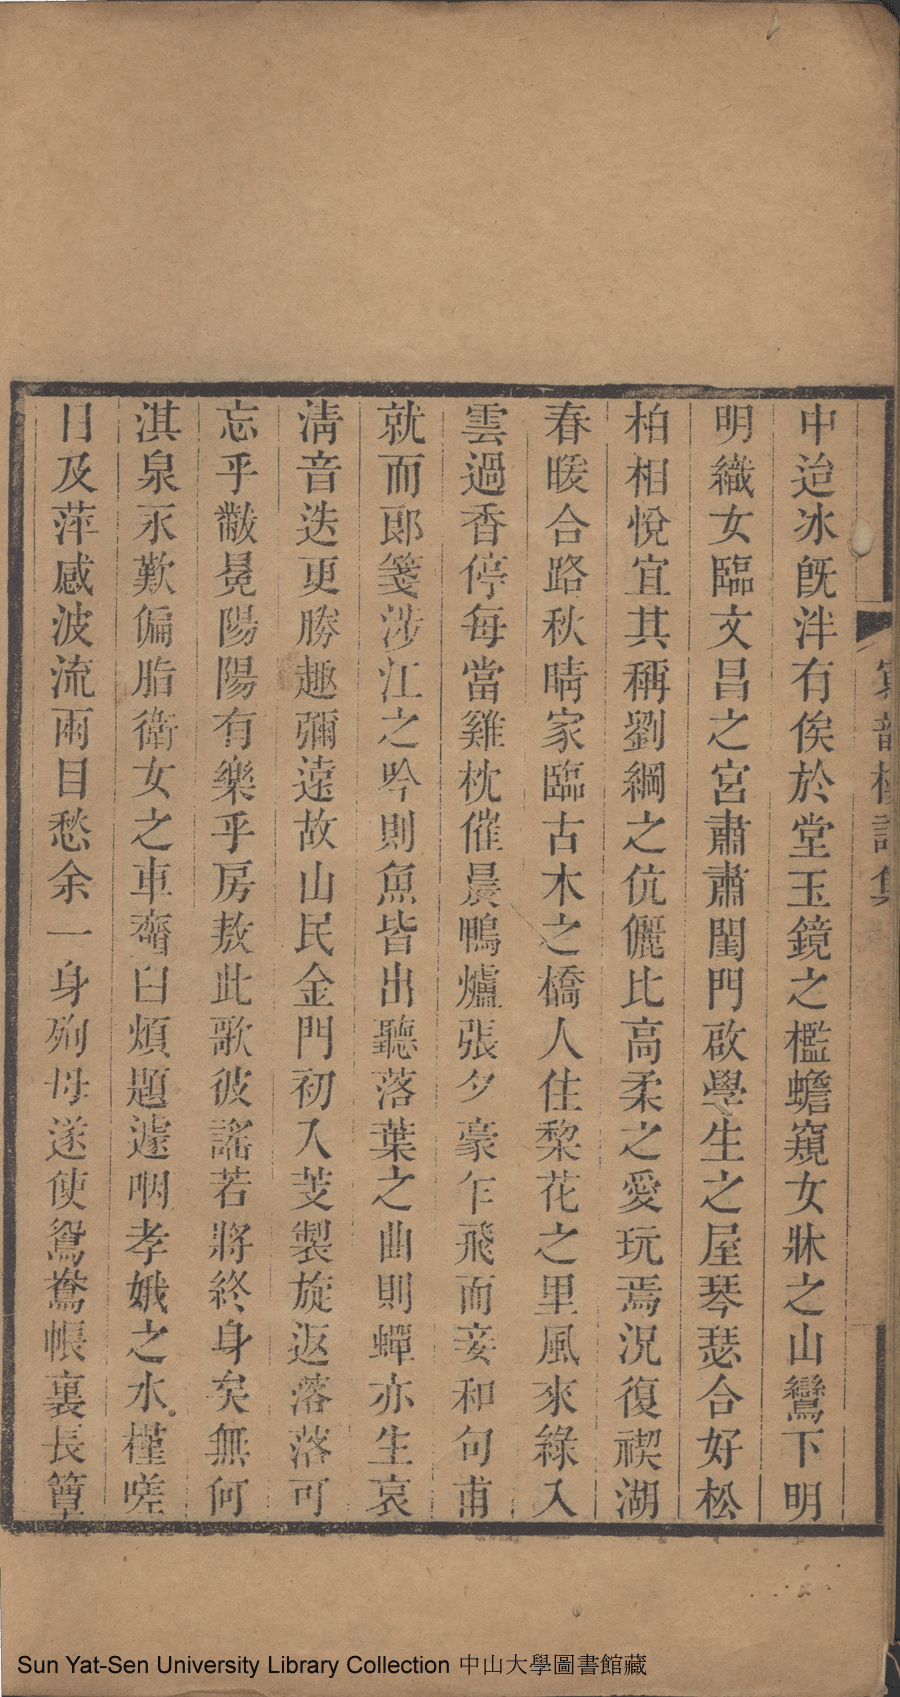 中迨冰旣泮有俟於堂玉鏡之檻蟾窺女牀之山鸞下明
明織女臨文昌之宮肅肅閨門啟學生之屋琴瑟合好松
柏相悅宜其稱劉綱之伉儷比高柔之愛玩焉況復禊湖
春暖合路秋晴家臨古木之橋人住棃花之里風來綠入
雲過香停每當雞枕催晨鴨爐張夕豪乍飛而妾和句甫
就而郞箋涉江之吟則魚皆出聽落葉之曲則蟬亦生哀
淸音迭更勝趣彌遠故山民金門初入芰製旋返落落可
忘乎黻冕陽陽有樂乎房敖此歌彼謠若將終身矣無何
淇泉永歎偏脂衞女之車虀臼煩題遽咽孝娥之水槿嗟
日及萍感波流兩目愁余一身殉母遂使鴛鴦帳裏長簟
詩集
Sun Yat-Sen University Library Collection 中山大學圖書館藏